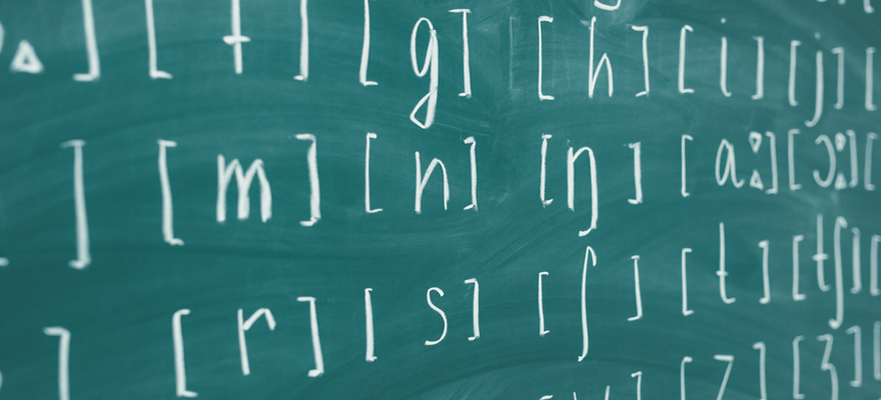 [f] [g] [h] [i] [j] [
] [m] [n] [ŋ] [aː] [ɔː] [
] [r] [s] [ʃ] [t] [tʃ] [
[z] [ʒ]